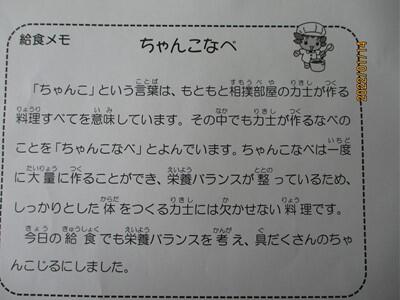 給食メモ
ちゃんこなべ
「ちゃんこ」という言葉は、もともと相撲部屋の力士が作る
料理すべてを意味しています。その中でも力士が作るなべの
ことを「ちゃんこなべ」とよんでいます。ちゃんこなべは一度
に大量に作ることができ、栄養バランスが整っているため、
しっかりとした体をつくる力士には欠かせない料理です。
今日の給食でも栄養バランスを考え、具だくさんのちゃ
んこじるにしました。